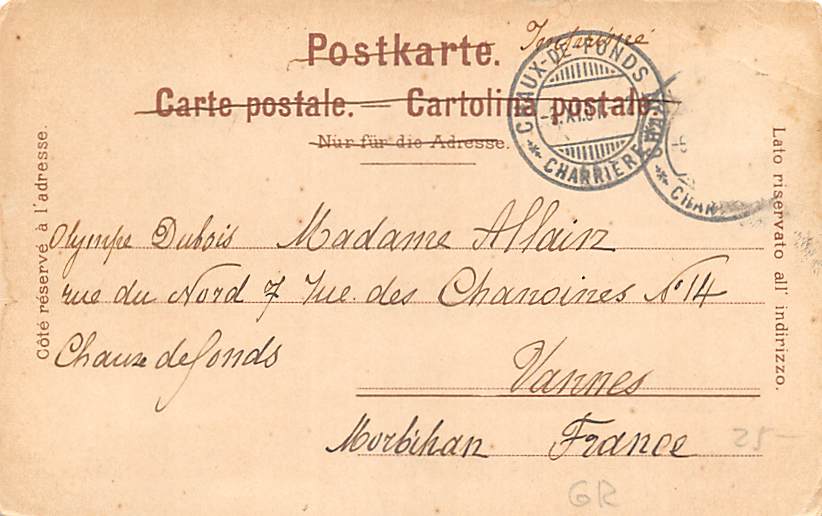 Postkarte. Imprimé
Carte postale. — Cartolina postale.
Nur für die Adresse.
CHAUX-DE-FONDS
CHARRIÈRE
CHAR
Côté réservé à l'adresse.
Lato riservato all' indirizzo.
Olympe Dubois Madame Allain
rue du Nord 7 rue des Chanoines No 14
Chaux de fonds
Vannes
Morbihan France
25-
GR